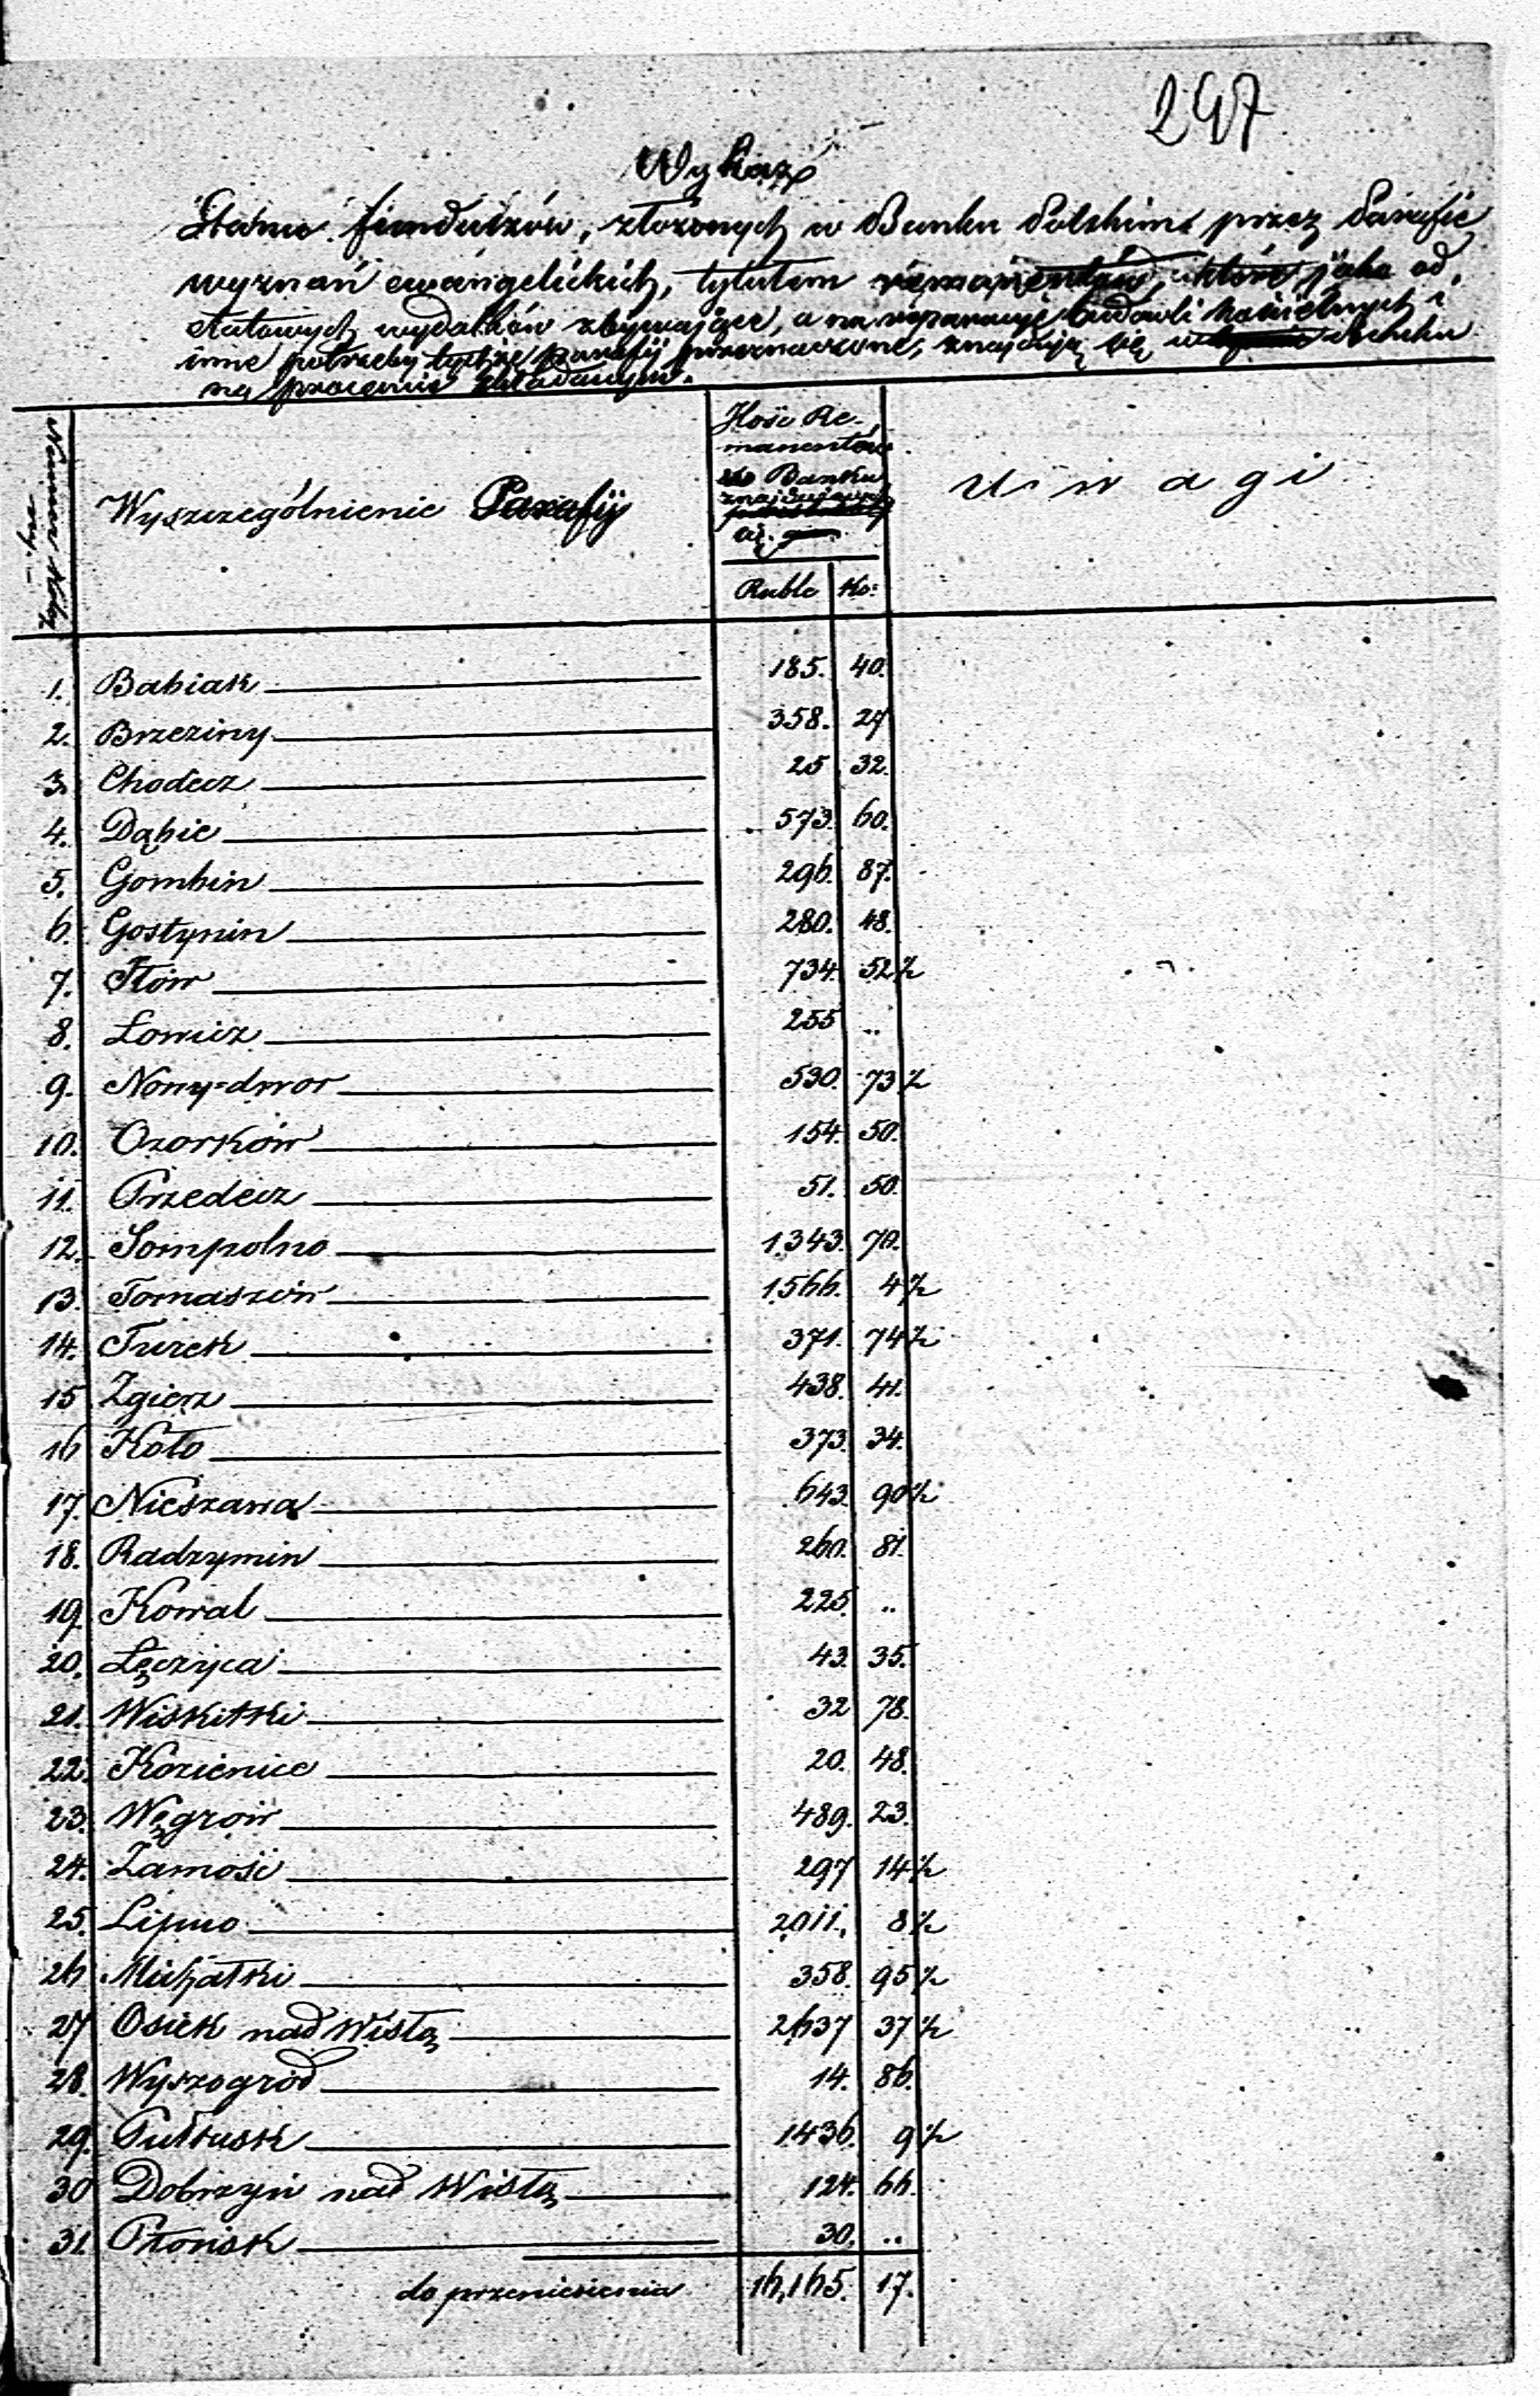 297
Wykaz
Stanu funduszów, złożonych w Banku Polskim przez Parafie
wyznań ewangelickich, tytułem remanentów, jako od
etatowych wydatków zbywające, a na reparacye budowli kościelnych i
inne potrzeby tychże parafij przeznaczone, znajdują się w Banku
na procencie składanym.
Numer
Wyszczególnienie Parafij
Ilość Re-
manentów
do Banku
znajdujących
się
Uwagi
Ruble Ko:
1. Babiak 185. 40.
2. Brzeziny 358. 27
3. Chodecz 25 32.
4. Dąbie 573. 60.
5. Gombin 296. 87.
6. Gostynin 280. 48.
7. Iłów 734. 52½
8. Łowicz 255 ..
9. Nowy=dwor 530. 73½
10. Ozorków 154. 50.
11. Przedecz 51. 50.
12. Sompolno 1.343. 70.
13. Tomaszów 1.566. 4½
14. Turek 371. 74½
15 Zgierz 438. 41.
16 Koło 373. 34.
17. Nieszawa 643. 90½
18. Radzymin 260. 81.
19. Kowal 225. ..
20. Łęczyca 43. 35.
21. Wiskitki 32 78.
22. Kozienice 20. 48.
23. Węgrów 489. 23.
24. Zamość 297 14½
25 Lipno 2,011. 8½
26 Michałki 358. 95½
27 Osiek nad Wisłą 2,637 37½
28. Wyszogród 14. 86.
29. Pułtusk 1436. 9½
30 Dobrzyń nad Wisłą 124. 66.
31. Płońsk 30. ..
do przeniesienia 16,165. 17.